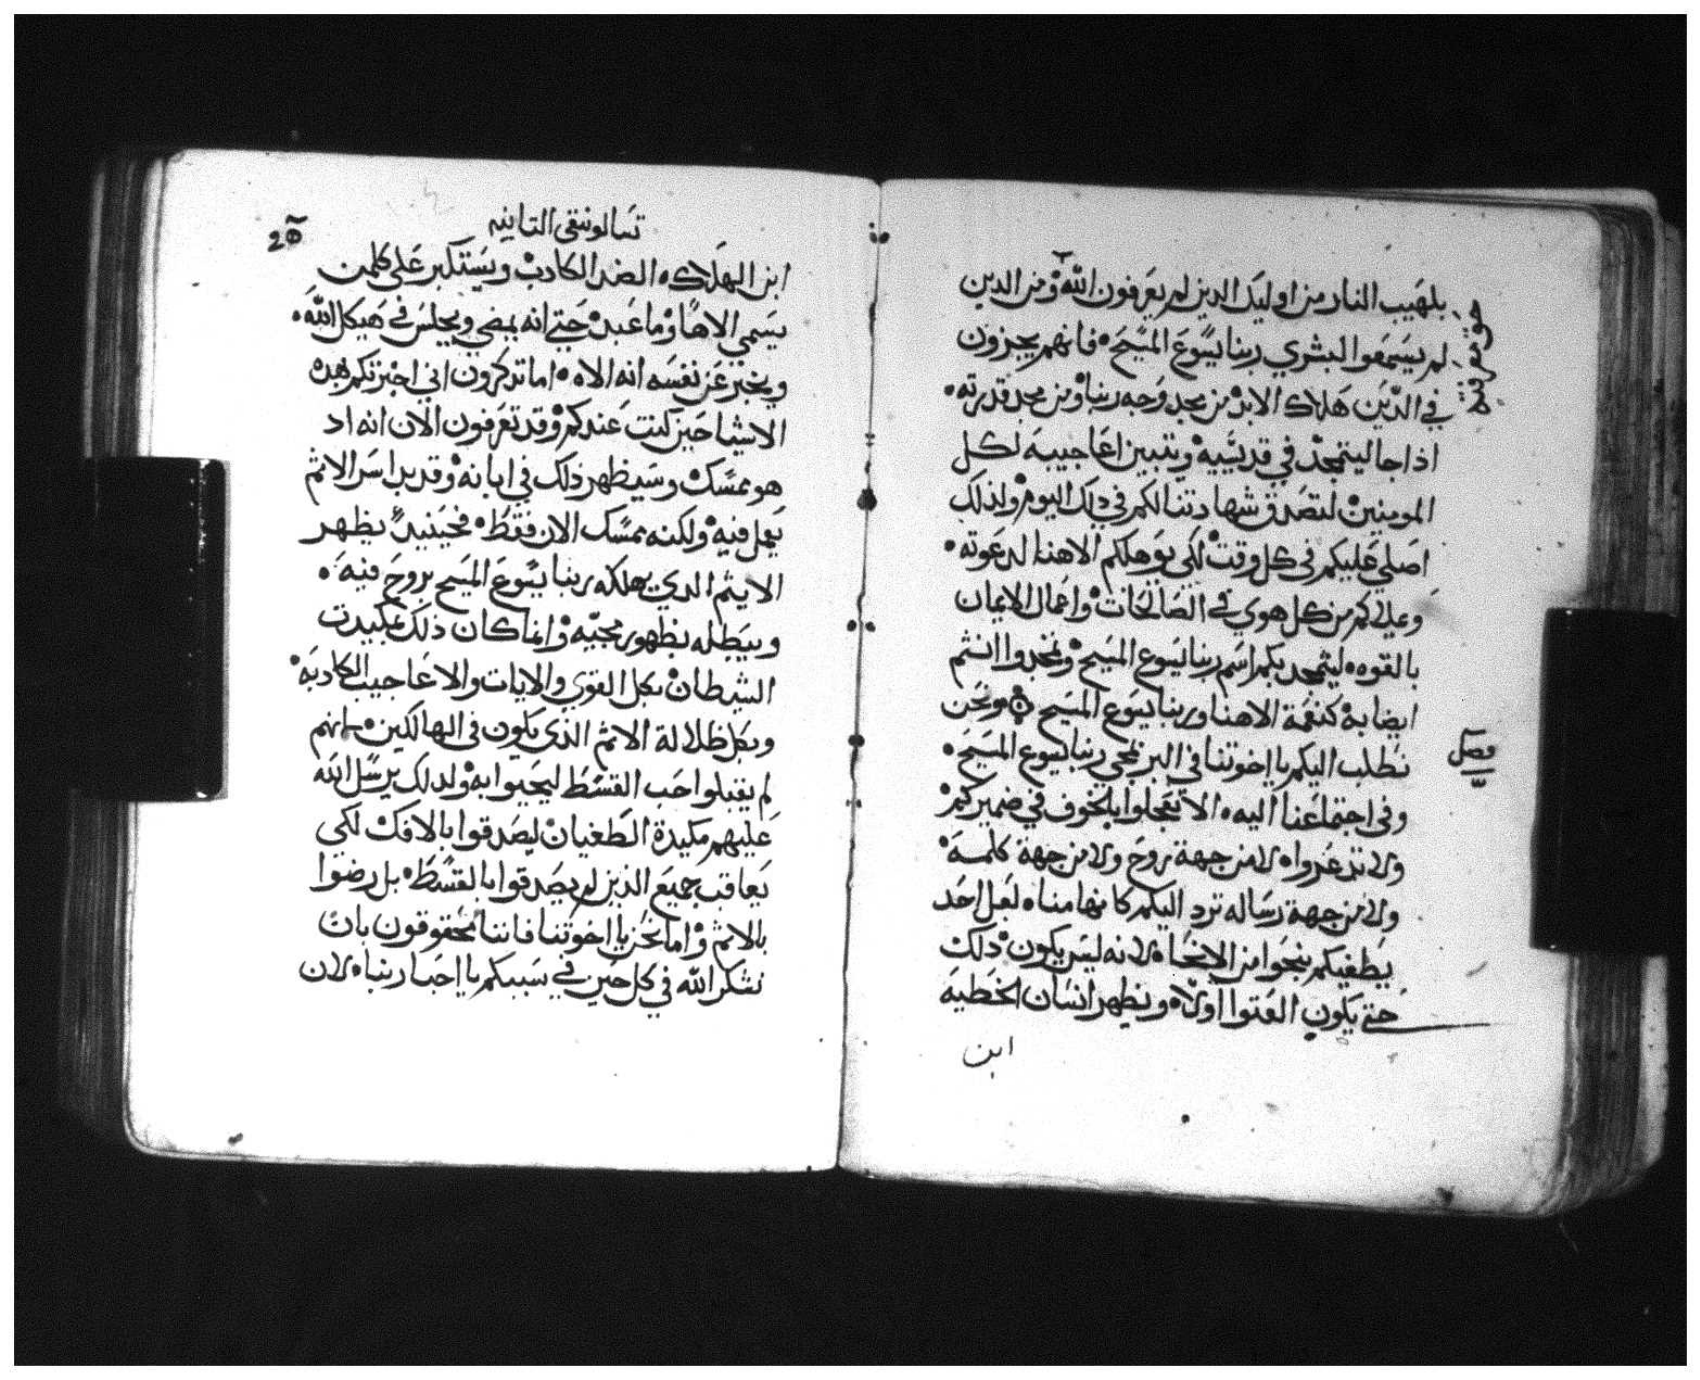 بلهيب النار من اوليك الدين لم يعرفون الله ومن الدين
لم يسمعوا البشري ربنا يسوع المسيح فانهم يجزون
في الدين هلاك الابد من مجد وجه ربنا ومن مجد قدرته
اذا جا ليتمجد في قديسيه وتتبين اعاجيبه لكل
المومنين لتصدق شهادتنا لكم في دلك اليوم ولذلك
اصلي عليكم في كل وقت لكي يوهلكم الاهنا لدعوته
وعلاكم من كل هوي في الصالحات واعمال الايمان
بالقوه ليتمجد بكم اسم ربنا يسوع المسيح وتمجدوا انتم
ايضا به كنعمة الاهنا وربنا يسوع المسيح ونحن
فصل
نطلب اليكم يا اخوتنا في البر لمجي ربنا يسوع المسيح
وفي اجتماعنا اليه الا تعجلوا بالخوف في ضميركم
ولا تدعروا لا من جهة روح ولا من جهة كلمه
ولا من جهة رساله ترد اليكم كانها منا لعل احد
يطغيكم بنحوا من الانحا لانه ليس يكون دلك
حتي يكون العتوا اولا ويظهر انسان الخطيه
ابن
تسالونيقى التانيه
ابن الهلاك الضد الكادب ويستكبر على كلمن
يسمي الاها وما عبد حتي انه يمضي ويجلس في هيكل الله
ويخبر عن نفسه انه الاه اما تدكرون اني اخبرتكم بهده
الاشيا حين كنت عندكم وقد تعرفون الان انه اد
هو ممسك وسيظهر ذلك في ابانه وقد بدا سر الاثم
يعمل فيه ولكنه ممسك الان فقط فحينيد يظهر
الايثم الدي يهلكه ربنا يسوع المسيح بروح فيه
ويبطله بظهور مجيه وانما كان ذلك بمكيدت
الشيطان بكل القوي والايات والاعاجيب الكادبه
وبكل ظلالة الاثم الذى يكون فى الهالكين لانهم
لم يقبلوا حب القسط ليحيوا به ولدلك يرسل الله
عليهم مكيدة الطغيان ليصدقوا بالافك لكى
يعاقب جميع الذين لم يصدقوا بالقسط بل رضوا
بالاثم واما نحن يا اخوتنا فاننا محقوقون بان
نشكر الله في كل حين في سببكم يا احبا ربنا لان